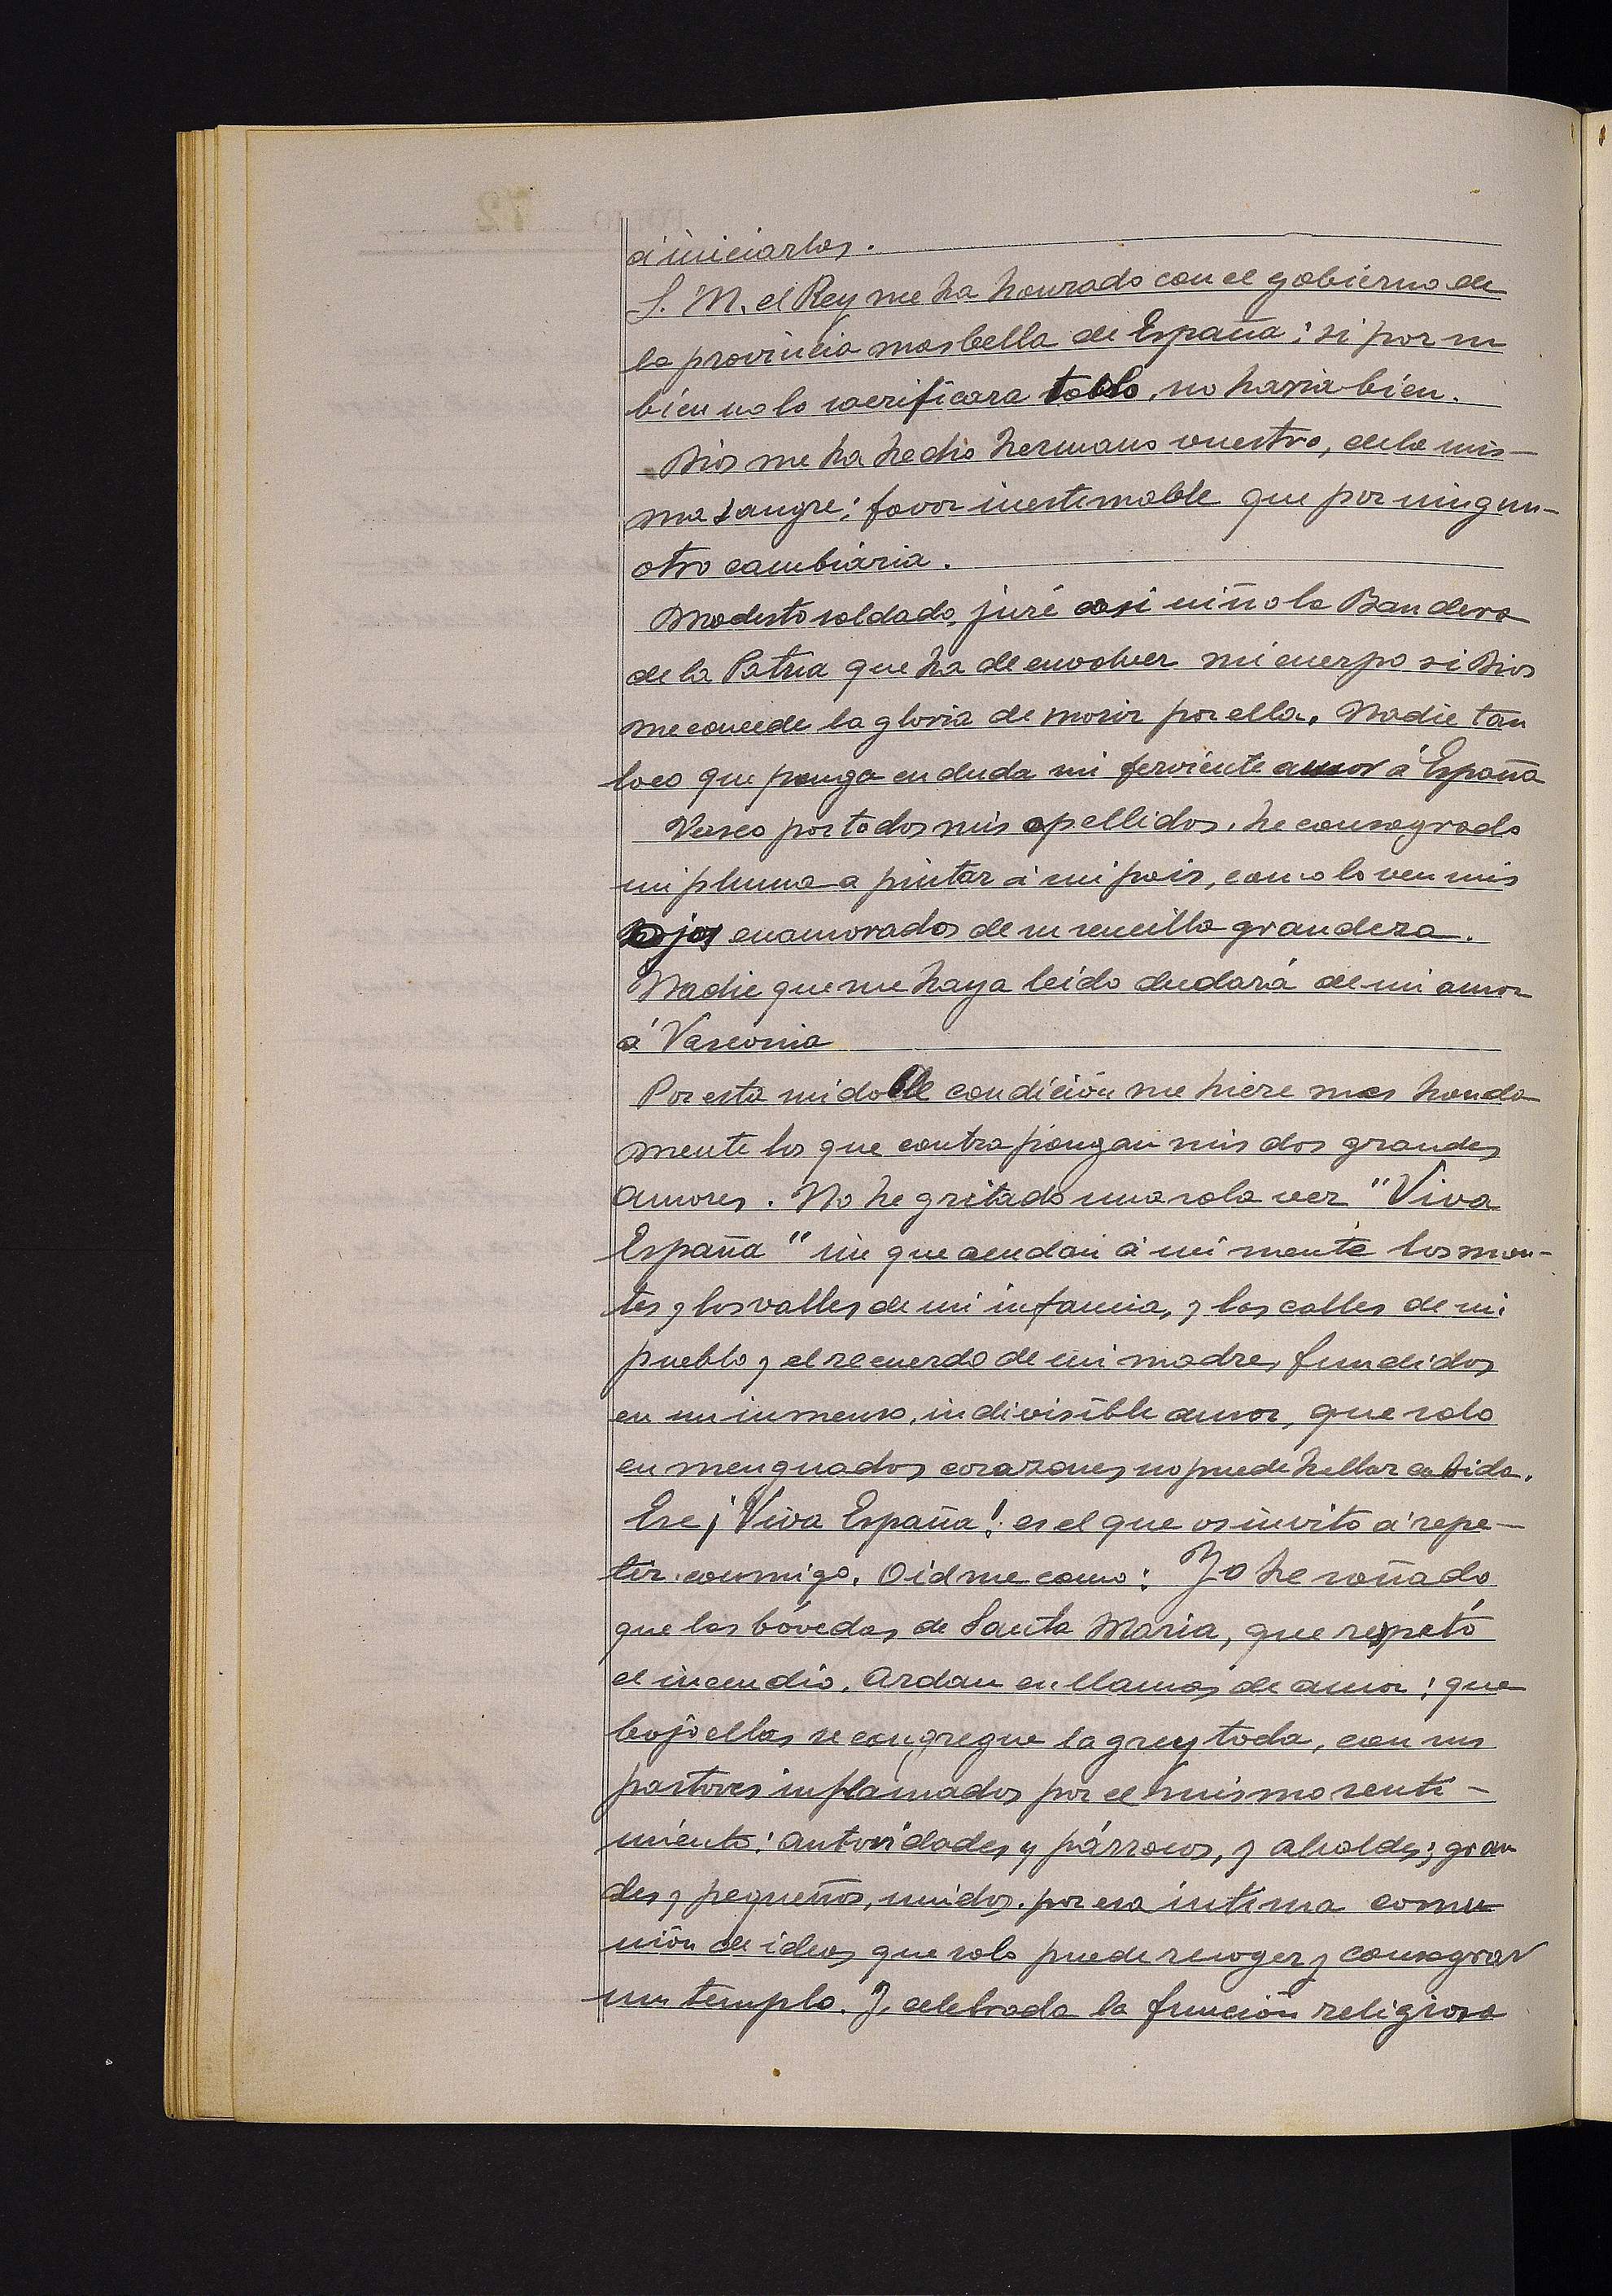 á iniciarlos.
S. M. el Rey me ha honrado con el gobierno de
la provincia mas bella de España: si por su
bien no lo sacrificara todo, no haria bien.
Dios me ha hecho hermano vuestro, de la mis-
ma sangre: favor inestimable que por ningun-
otro cambiaria.
Modesto soldado, juré casi niño la Bandera
de la Patria que ha de envolver mi cuerpo si Dios
me concede la gloria de morir por ella. Nadie tan
loco que ponga en duda mi ferviente amor á España
Vasco por todos mis apellidos, he consagrado
mi pluma a pintar á mi pais, como lo ven mis
ojos enamorados de su sencilla grandeza.
Nadie que me haya leido dudará de mi amor
á Vasconia
Por esta mi doble condición me hiere mas honda
mente los que contrapongan mis dos grandes
amores. No he gritado una sola vez "Viva
España" sin que acudan á mi mente los mon-
tes y los valles de mi infancia, y las calles de mi
pueblo y el recuerdo de mi madre, fundidos
en un inmenso, indivisible amor, que solo
en menguados corazones no puede hallar cabida.
Ese ¡Viva España! es el que os invito á repe-
tir conmigo. Oidme como: Yo he soñado
que las bóvedas de Santa Maria, que respetó
el incendio, ardan en llamas de amor; que
bajo ellas se congregue la grey toda, con sus
pastores inflamados por el mismo senti-
miento: autoridades y párrocos, y alcaldes; gran
des y pequeños, unidos por esa intima comu
nión de ideas que solo puede recoger y consagrar
un templo. Y, celebrada la función religiosa